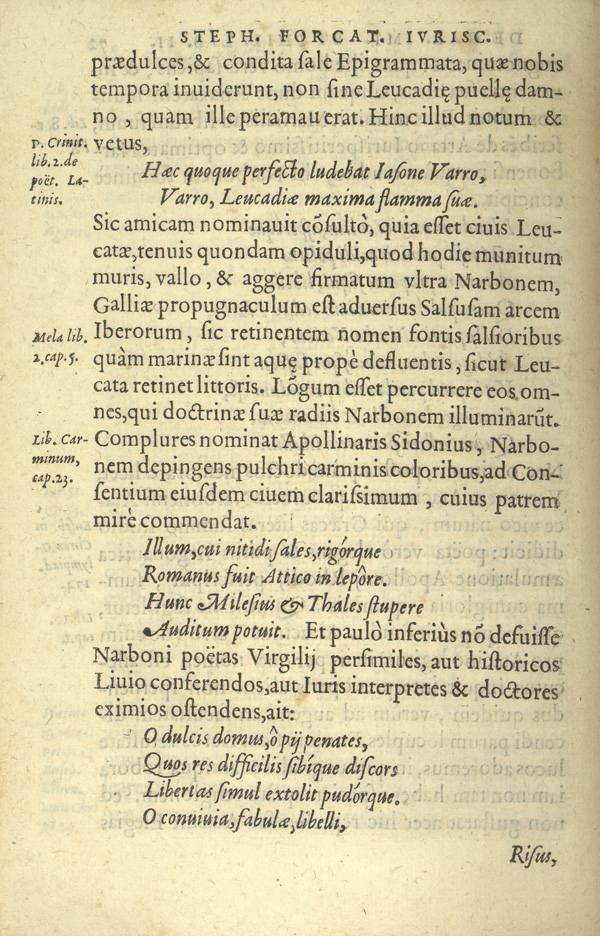 STEPH. FORCAT. IVRISC.
prædulces,& condita ſale Epigrammata, quæ nobis
tempora inuiderunt, non ſine Leucadię puellę dam-
no , quam ille peramauerat. Hinc illud notum &
vetus,
P. Crinit.
lib. 2. de
poët. La-
tinis.
Hæc quoque perfecto ludebat Iaſone Varro,
Varro, Leucadiæ maxima flamma ſuæ.
Sic amicam nominauit cõſultò, quia eſſet ciuis Leu-
catæ,tenuis quondam opiduli,quod hodie munitum
muris, vallo , & aggere firmatum vltra Narbonem,
Galliæ propugnaculum eſt aduerſus Salſuſam arcem
Iberorum , ſic retinentem nomen fontis ſalſioribus
Mela lib.
2. cap. 5.
quàm marinæ ſint aquę propè defluentis , ſicut Leu-
cata retinet littoris. Lõgum eſſet percurrere eos om-
nes,qui doctrinæ ſuæ radiis Narbonem illuminarũt.
Complures nominat Apollinaris Sidonius , Narbo-
Lib. Car-
minum,
cap. 23.
nem depingens pulchri carminis coloribus,ad Con-
ſentium eiuſdem ciuem clariſſimum , cuius patrem
mirè commendat.
Illum,cui nitidi ſales,rigórque
Romanus fuit Attico in lepôre.
Hunc Mileſius & Thales ſtupere
Auditum potuit. Et paulò inferiùs nõ defuiſſe
Narboni poëtas Virgilij perſimiles, aut hiſtoricos
Liuio conferendos,aut Iuris interpretes & doctores
eximios oſtendens,ait:
O dulcis domus,ô pij penates,
Quos res difficilis ſibíque diſcors
Libertas ſimul extolit pudórque.
O conuiuia,fabulæ,libelli,
Riſus,